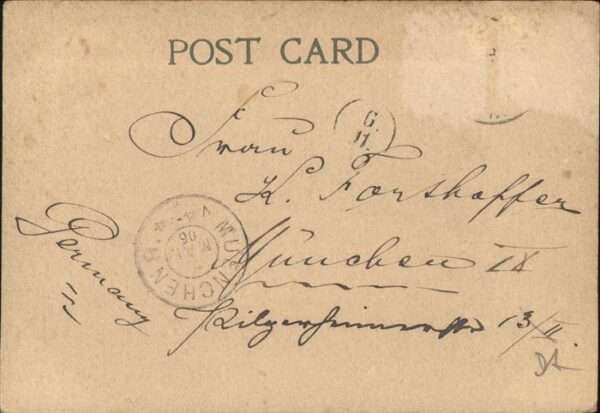 POST CARD
G.
11.
Frau
K. Forsthoffer
München IX
Pilgersheimerstr 13/II.
Germany
MUENCHEN